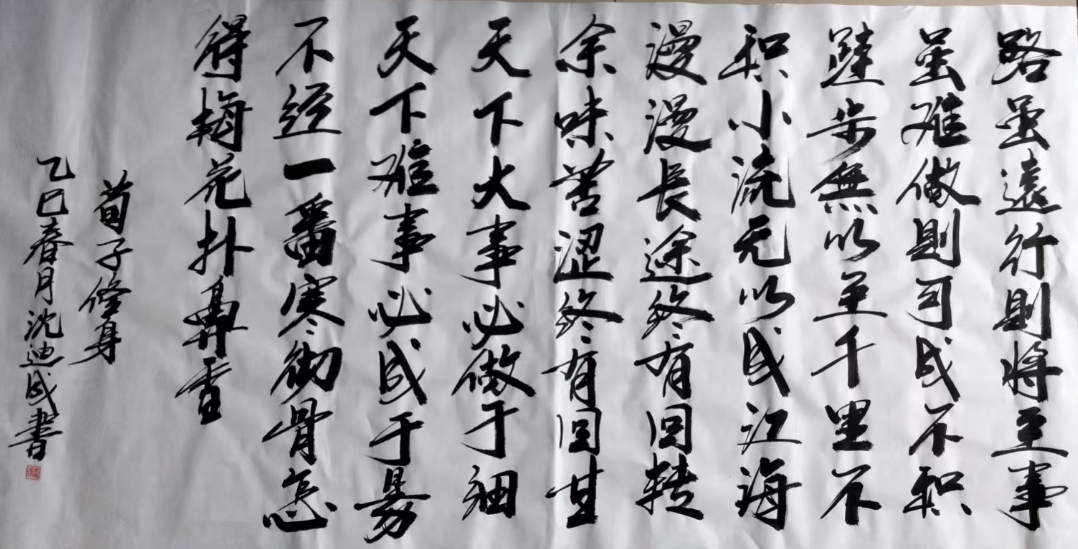 路虽遠行則將至事
虽难做則可成不积
跬步無以至千里不
积小流无以成江海
漫漫長途终有回转
余味苦涩终有回甘
天下大事必做于细
天下难事必成于易
不经一番寒彻骨怎
得梅花扑鼻香
荀子修身
乙巳春月沈迪成書